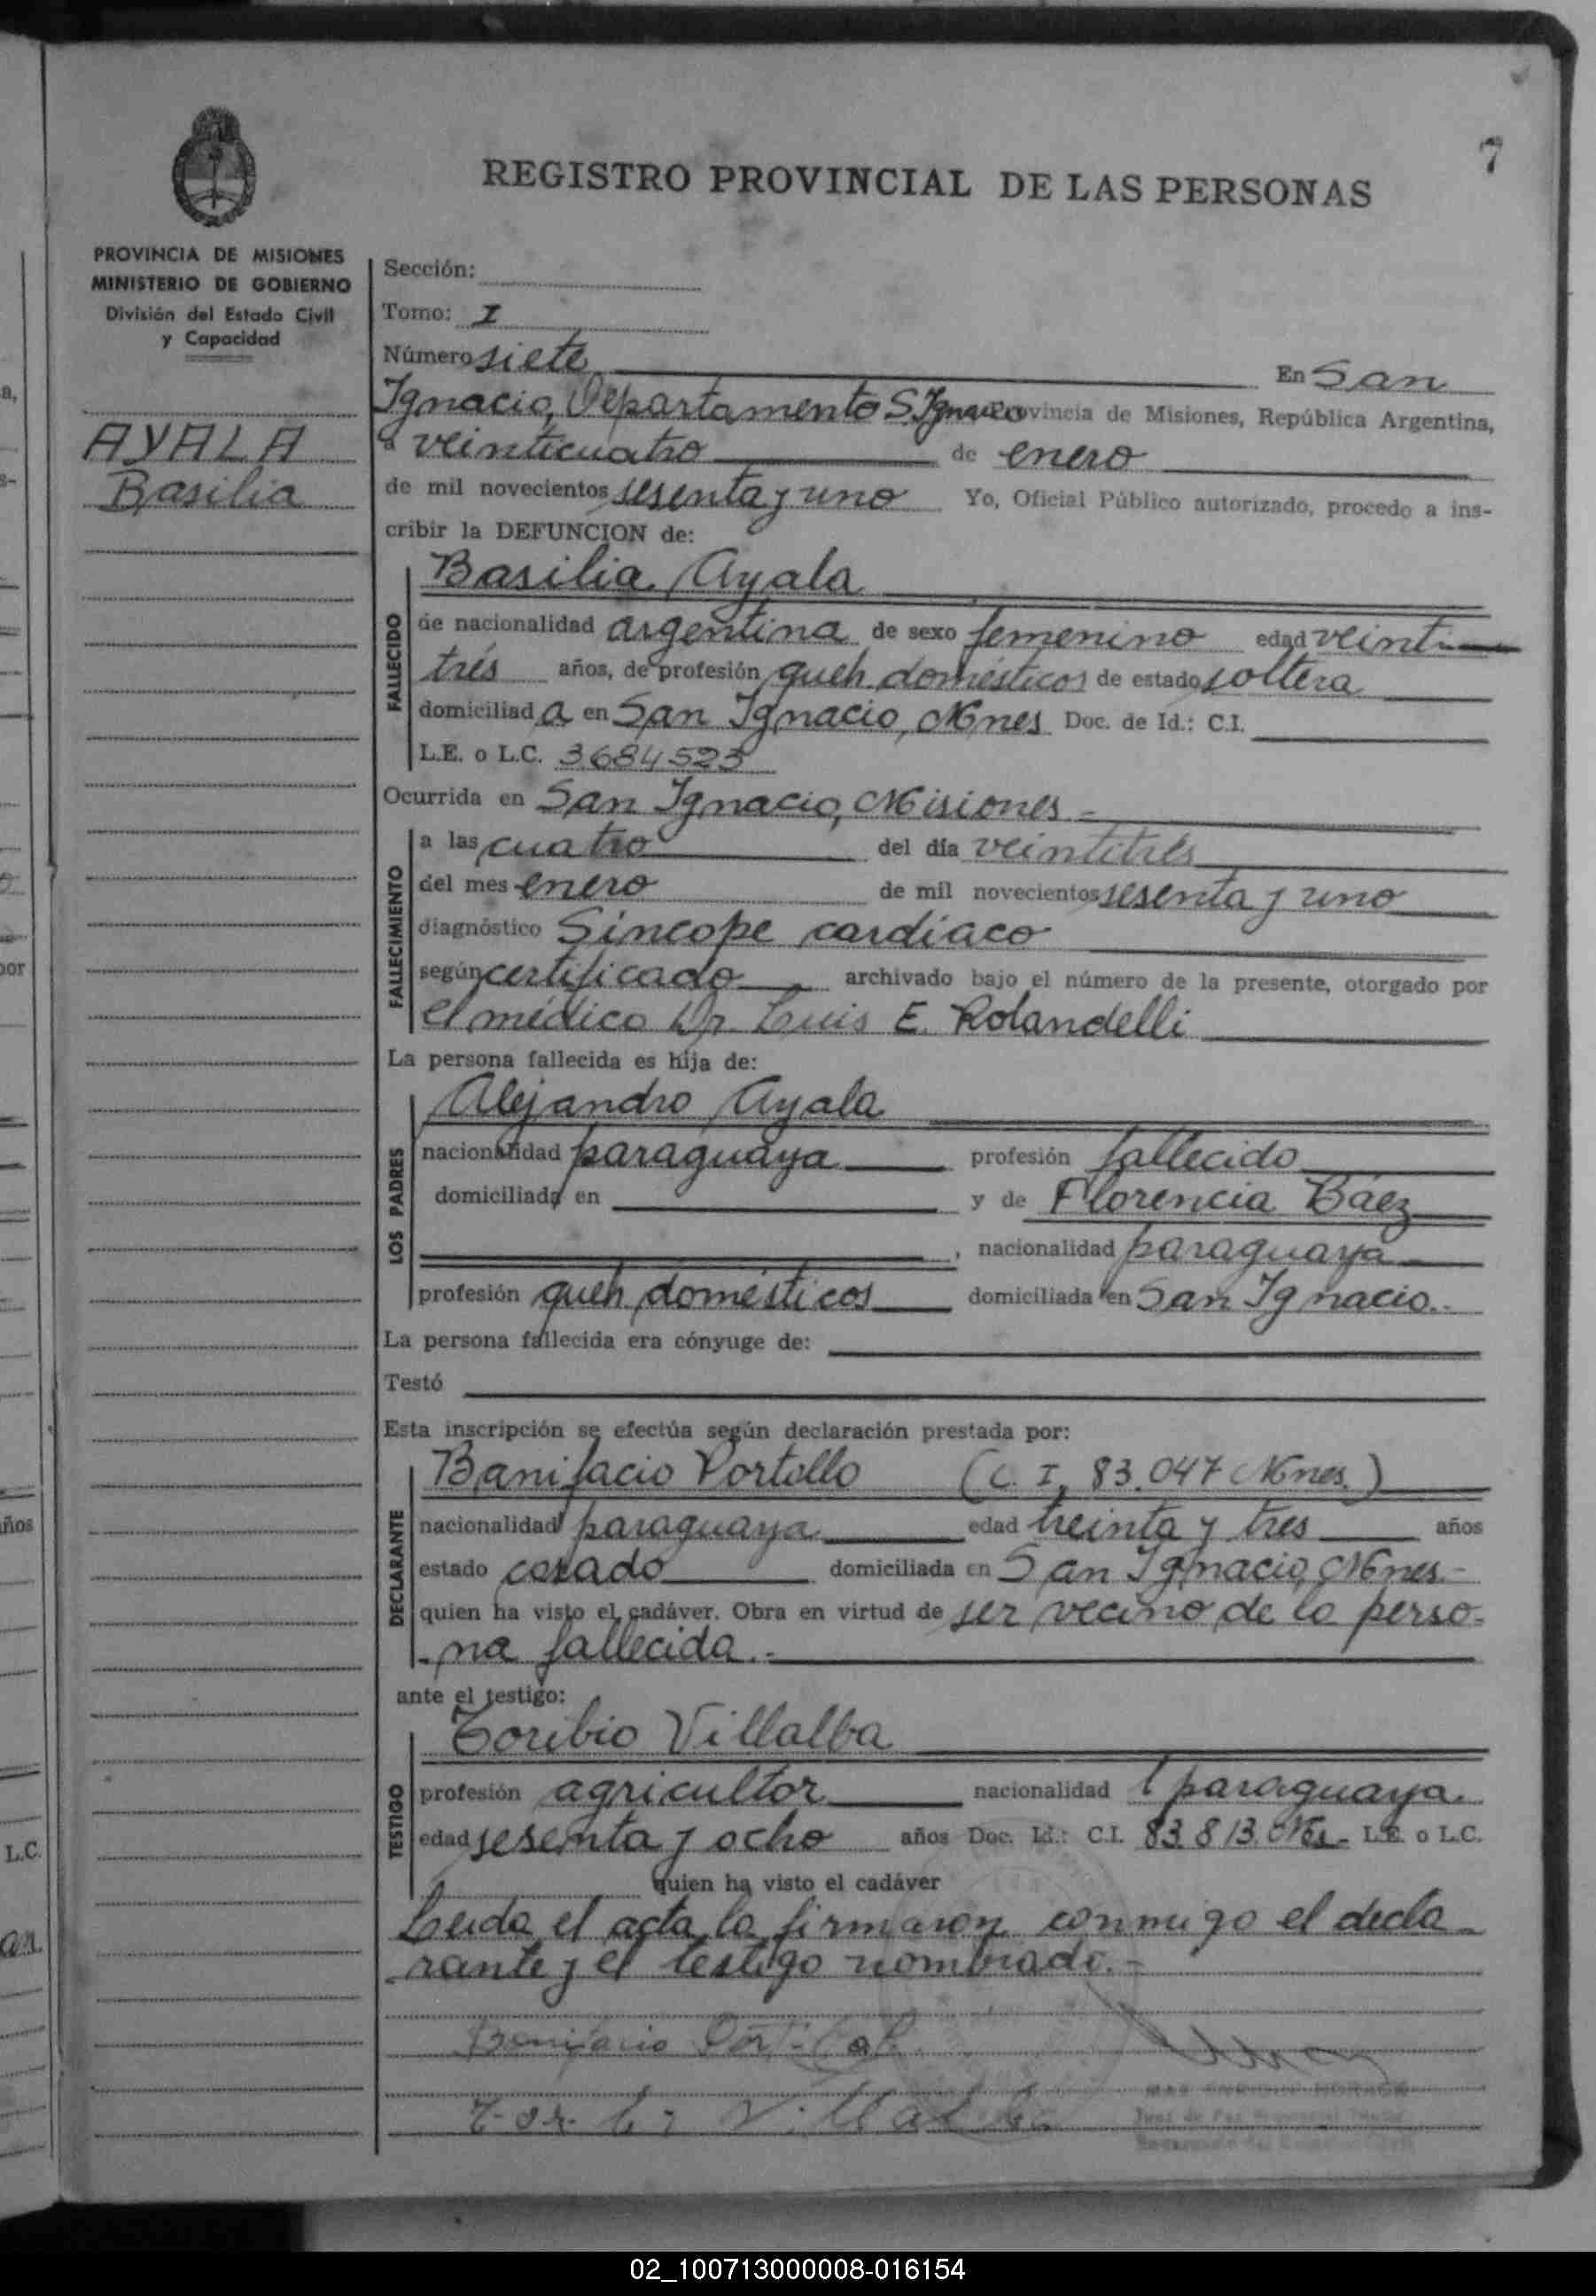 7
REGISTRO PROVINCIAL DE LAS PERSONAS
PROVINCIA DE MISIONES
MINISTERIO DE GOBIERNO
División del Estado Civil
y Capacidad
AYALA
Basilia
Sección:
Tomo: I
Número siete En San
Ignacio, Departamento S. Ignacio Provincia de Misiones, República Argentina,
a veinticuatro de enero
de mil novecientos sesenta y uno Yo, Oficial Público autorizado, procedo a ins-
cribir la DEFUNCION de:
FALLECIDO
Basilia Ayala
de nacionalidad argentina de sexo femenino edad veinti
trés años, de profesión queh domésticos de estado soltera
domiciliad a en San Ignacio, Mnes Doc. de Id.: C.I.
L.E. o L.C. 3684523
Ocurrida en San Ignacio, Misiones -
FALLECIMIENTO
a las cuatro del día veintitrés
del mes enero de mil novecientos sesenta y uno
diagnóstico Síncope cardíaco
según certificado archivado bajo el número de la presente, otorgado por
el médico Dr. Luis E. Rolandelli
La persona fallecida es hija de:
LOS PADRES
Alejandro Ayala
nacionalidad paraguaya profesión fallecido
domiciliado en y de Florencia Báez
, nacionalidad paraguaya
profesión queh domésticos domiciliada en San Ignacio.-
La persona fallecida era cónyuge de:
Testó
Esta inscripción se efectúa según declaración prestada por:
DECLARANTE
Banifacio Portello (C. I. 83.047 Mnes.)
nacionalidad paraguaya edad treinta y tres años
estado casado domiciliada en San Ignacio, Mnes.-
quien ha visto el cadáver. Obra en virtud de ser vecino de la perso-
-na fallecida.-
ante el testigo:
TESTIGO
Toribio Villalba
profesión agricultor nacionalidad paraguaya.
edad sesenta y ocho años Doc. Id.: C.I. 83.813 L.E. o L.C.
quien ha visto el cadáver
Leida el acta la firmaron conmigo el decla-
rante y el testigo nombrado.-
Bonifacio
Villalba
Juez de Paz
L.C.
años
02_100713000008-016154